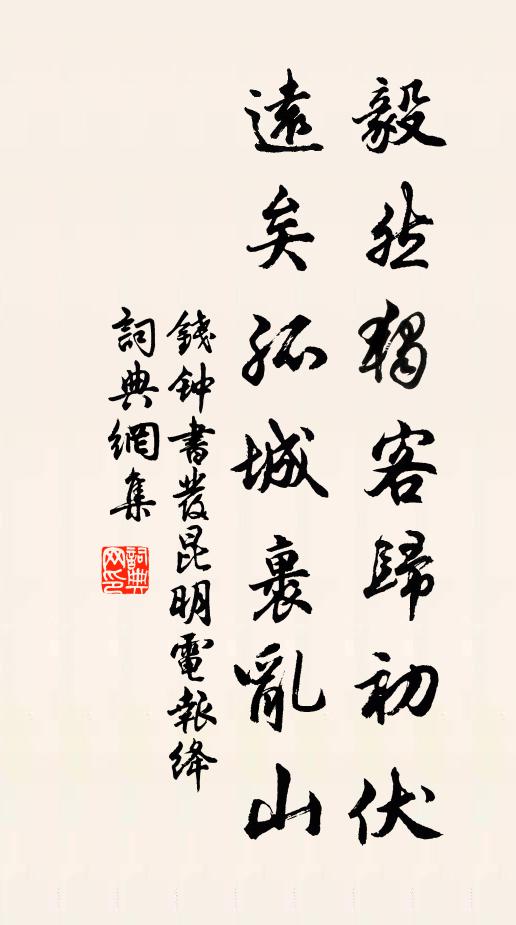 毅然獨客歸初伏
遠矣孤城裹亂山
錢钟書發昆明電報絳
詞典網集
詞典网印